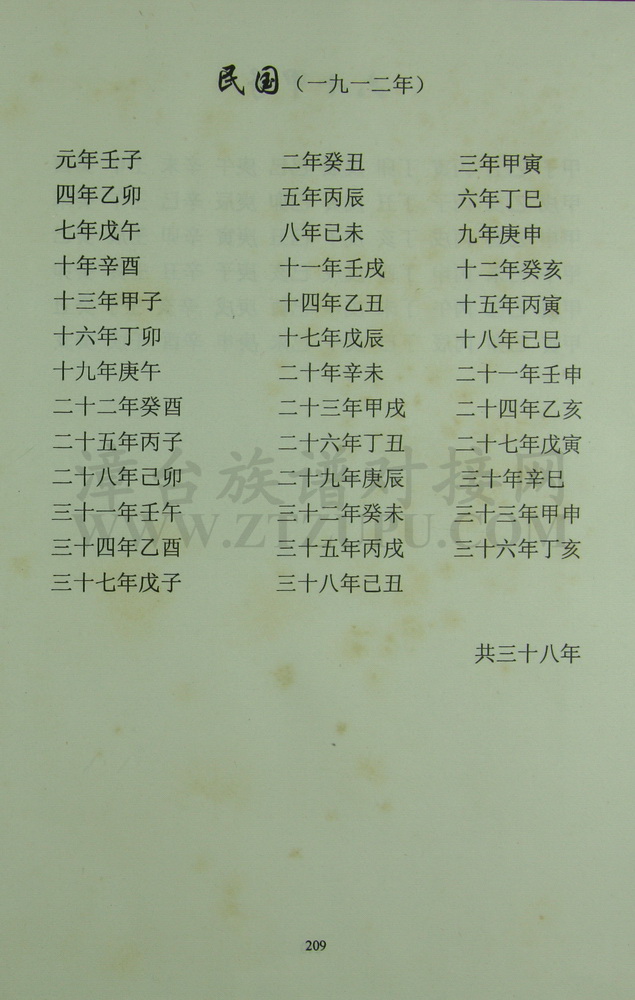 民国（一九一二年）
元年壬子 二年癸丑 三年甲寅
四年乙卯 五年丙辰 六年丁巳
七年戊午 八年已未 九年庚申
十年辛酉 十一年壬戌 十二年癸亥
十三年甲子 十四年乙丑 十五年丙寅
十六年丁卯 十七年戊辰 十八年已巳
十九年庚午 二十年辛未 二十一年壬申
二十二年癸酉 二十三年甲戌 二十四年乙亥
二十五年丙子 二十六年丁丑 二十七年戊寅
二十八年己卯 二十九年庚辰 三十年辛巳
三十一年壬午 三十二年癸未 三十三年甲申
三十四年乙酉 三十五年丙戌 三十六年丁亥
三十七年戊子 三十八年己丑
漳台族谱对接网
WWW.ZTZUPU.COM
共三十八年
209